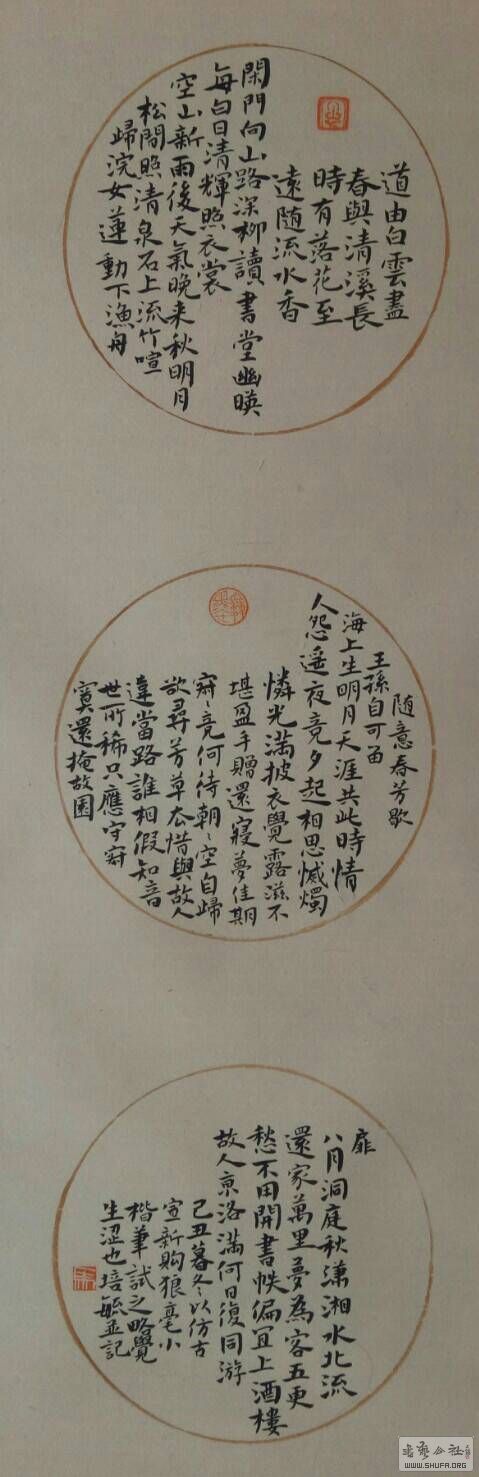 道由白雲盡
春與清溪長
時有落花至
遠随流水香
閑門向山路深柳讀書堂幽暎
每白日清輝照衣裳
空山新雨後天氣晚来秋明月
松間照清泉石上流竹喧
歸浣女蓮動下漁舟
随意春芳歇
王孫自可畄
海上生明月天涯共此時情
人怨遥夜竟夕起相思滅燭
憐光満披衣覺露滋不
堪盈手贈還寢夢佳期
寂〻竟何待朝〻空自歸
欲尋芳草去惜與故人
違當路誰相假知音
世所稀只應守寂
寞還掩故園
扉
八月洞庭秋瀟湘水北流
還家萬里夢為客五更
愁不用開書帙偏宜上酒樓
故人京洛満何日復同游
己丑暮冬以仿古
宣新購狼毫小
楷筆試之略覺
生涩也培毓並記
WWW.SHUFA.ORG